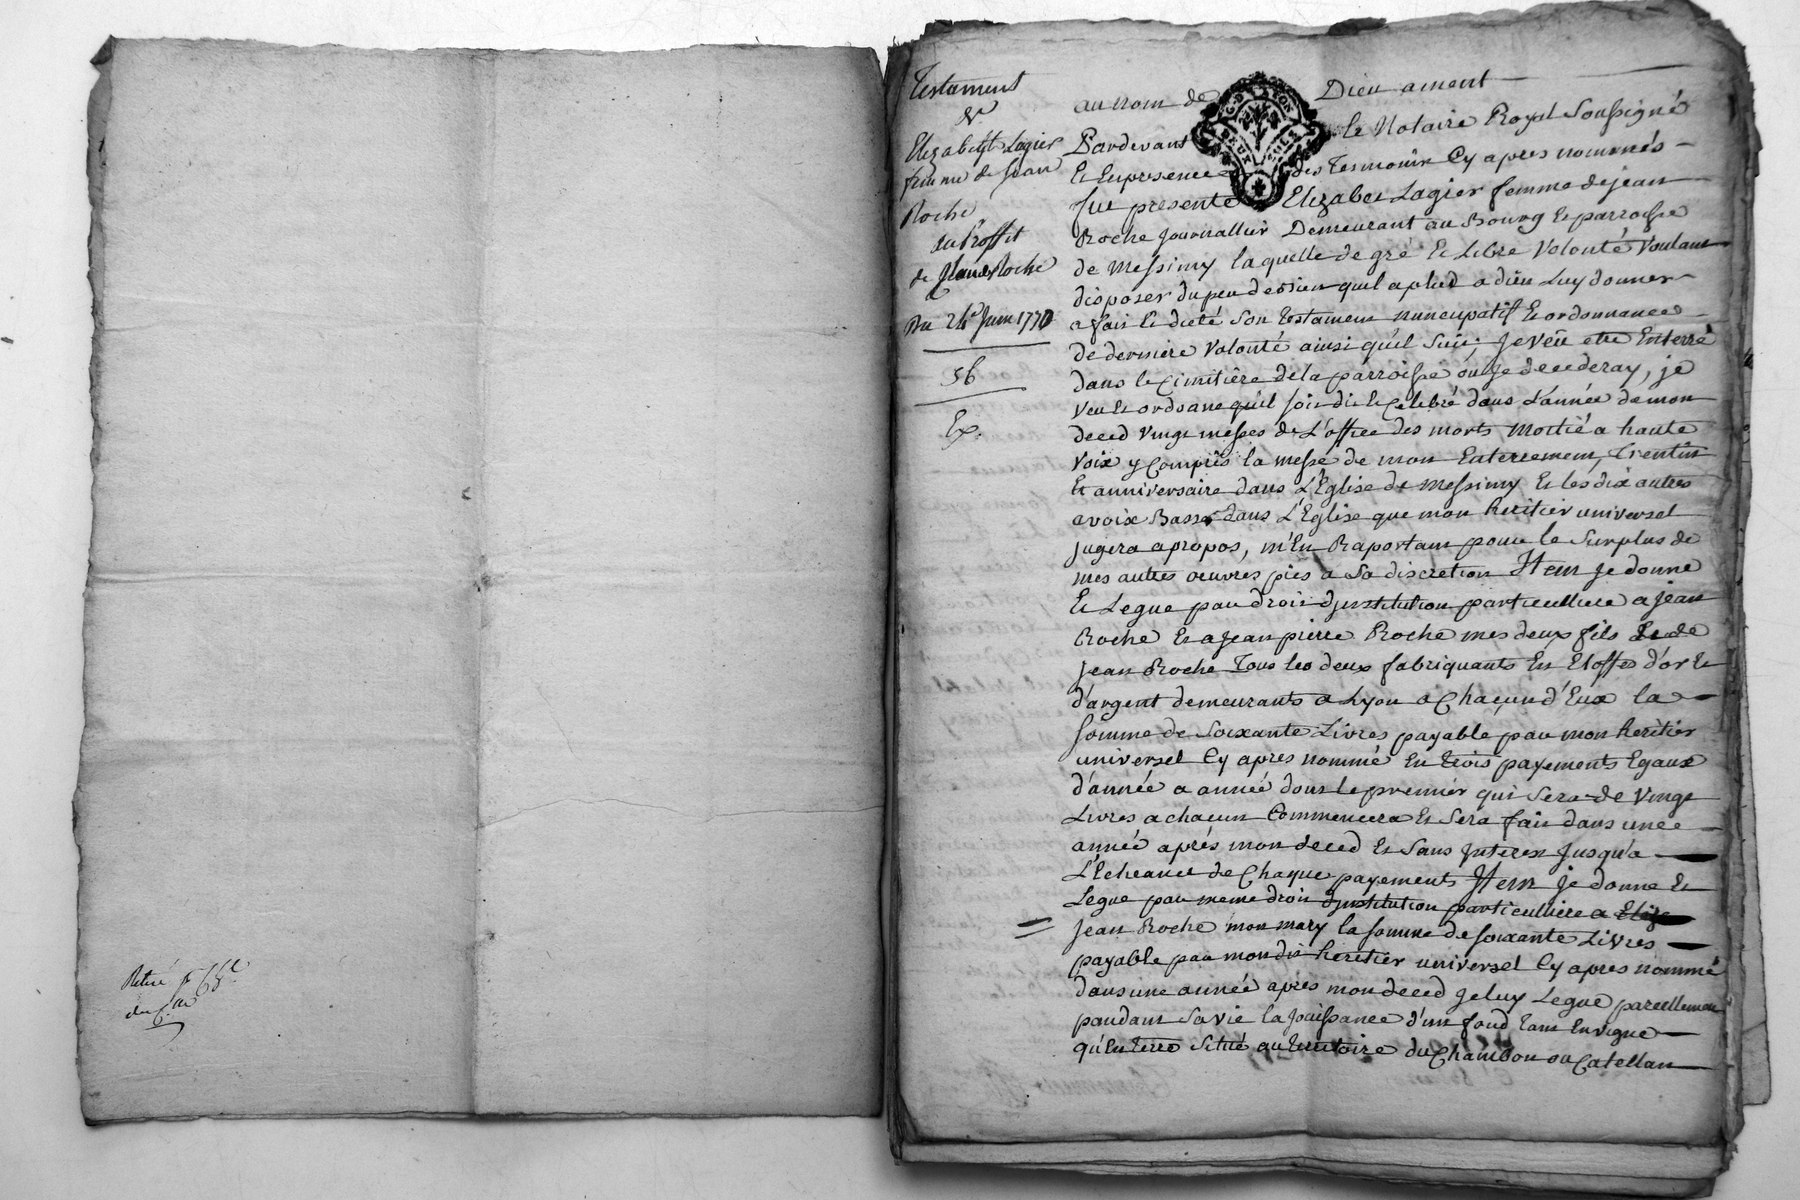 Retiré
du
Testament
de
Elizabeth Lagier
femme de Jean
Roche
au Proffit
de Claude Roche
Du 24e Juin 1770
56
Ex.
au nom de Dieu ament
G. D. LYON
DEUX SOLS
Pardevant le Notaire Royal Soussigné
Et En presence des Temonir Cy apres nommés
fue presente Elizabet Lagier femme de jean
Roche journallier Demeurant au Bourg et parroisse
de Messimy laquelle de gré Et Libre Volonté Voulant
disposer du peu de bien quil a plud a dieu Luy donner
a fait Et dicté Son Testament nuncupatif Et ordonnance
de derniere Volonté ainsi qu'il Suit, je vëu etre Enterré
dans le Cimitière de la parroisse ou je decederay, je
veu Et ordoane qu'il soit dit Et Celebré dans L'année de mon
deced vingt messes de L'office des morts moitié a haute
voix y Compris la messe de mon Enterrement, Trentin
Et anniversaire dans L'Eglise de Messimy Et les dix autres
a voix Basse dans L'Eglise que mon heritier universel
jugera apropos, m'En Raportant pour le Surplus de
mes autres oeuvres pies a Sa discretion Item je donne
Et Legue par droit d'jnstitution particulliere a jean
Roche Et a jean pierre Roche mes deux fils Et de
jean Roche Tous les deux fabriquants En Etoffes d'or Et
d'argent demeurants a Lyon a Chaçun d'Eux la
Somme de Soixante Livres payable par mon heritier
universel Cy apres nommé En trois payements Egaux
d'année a année dont le premiér qui Sera de Vingt
Livres a chacun Commencera Et Sera fait dans unee
année aprés mon deced Et Sans Interex Jusqu'a
L'Echeance de Chaque payements Item je donne Et
Legue par meme droit d'jnstitution particulliere a
jean Roche mon mary la somme de soixante Livres
payable par mondit heritier universel Cy apres nommé
dans une année apres mon deced je luy Legue pareillement
pandant Sa vie la jouissance d'un fond tant En vigne
qu'En terre Situé au territoire du Chambon ou Catellan